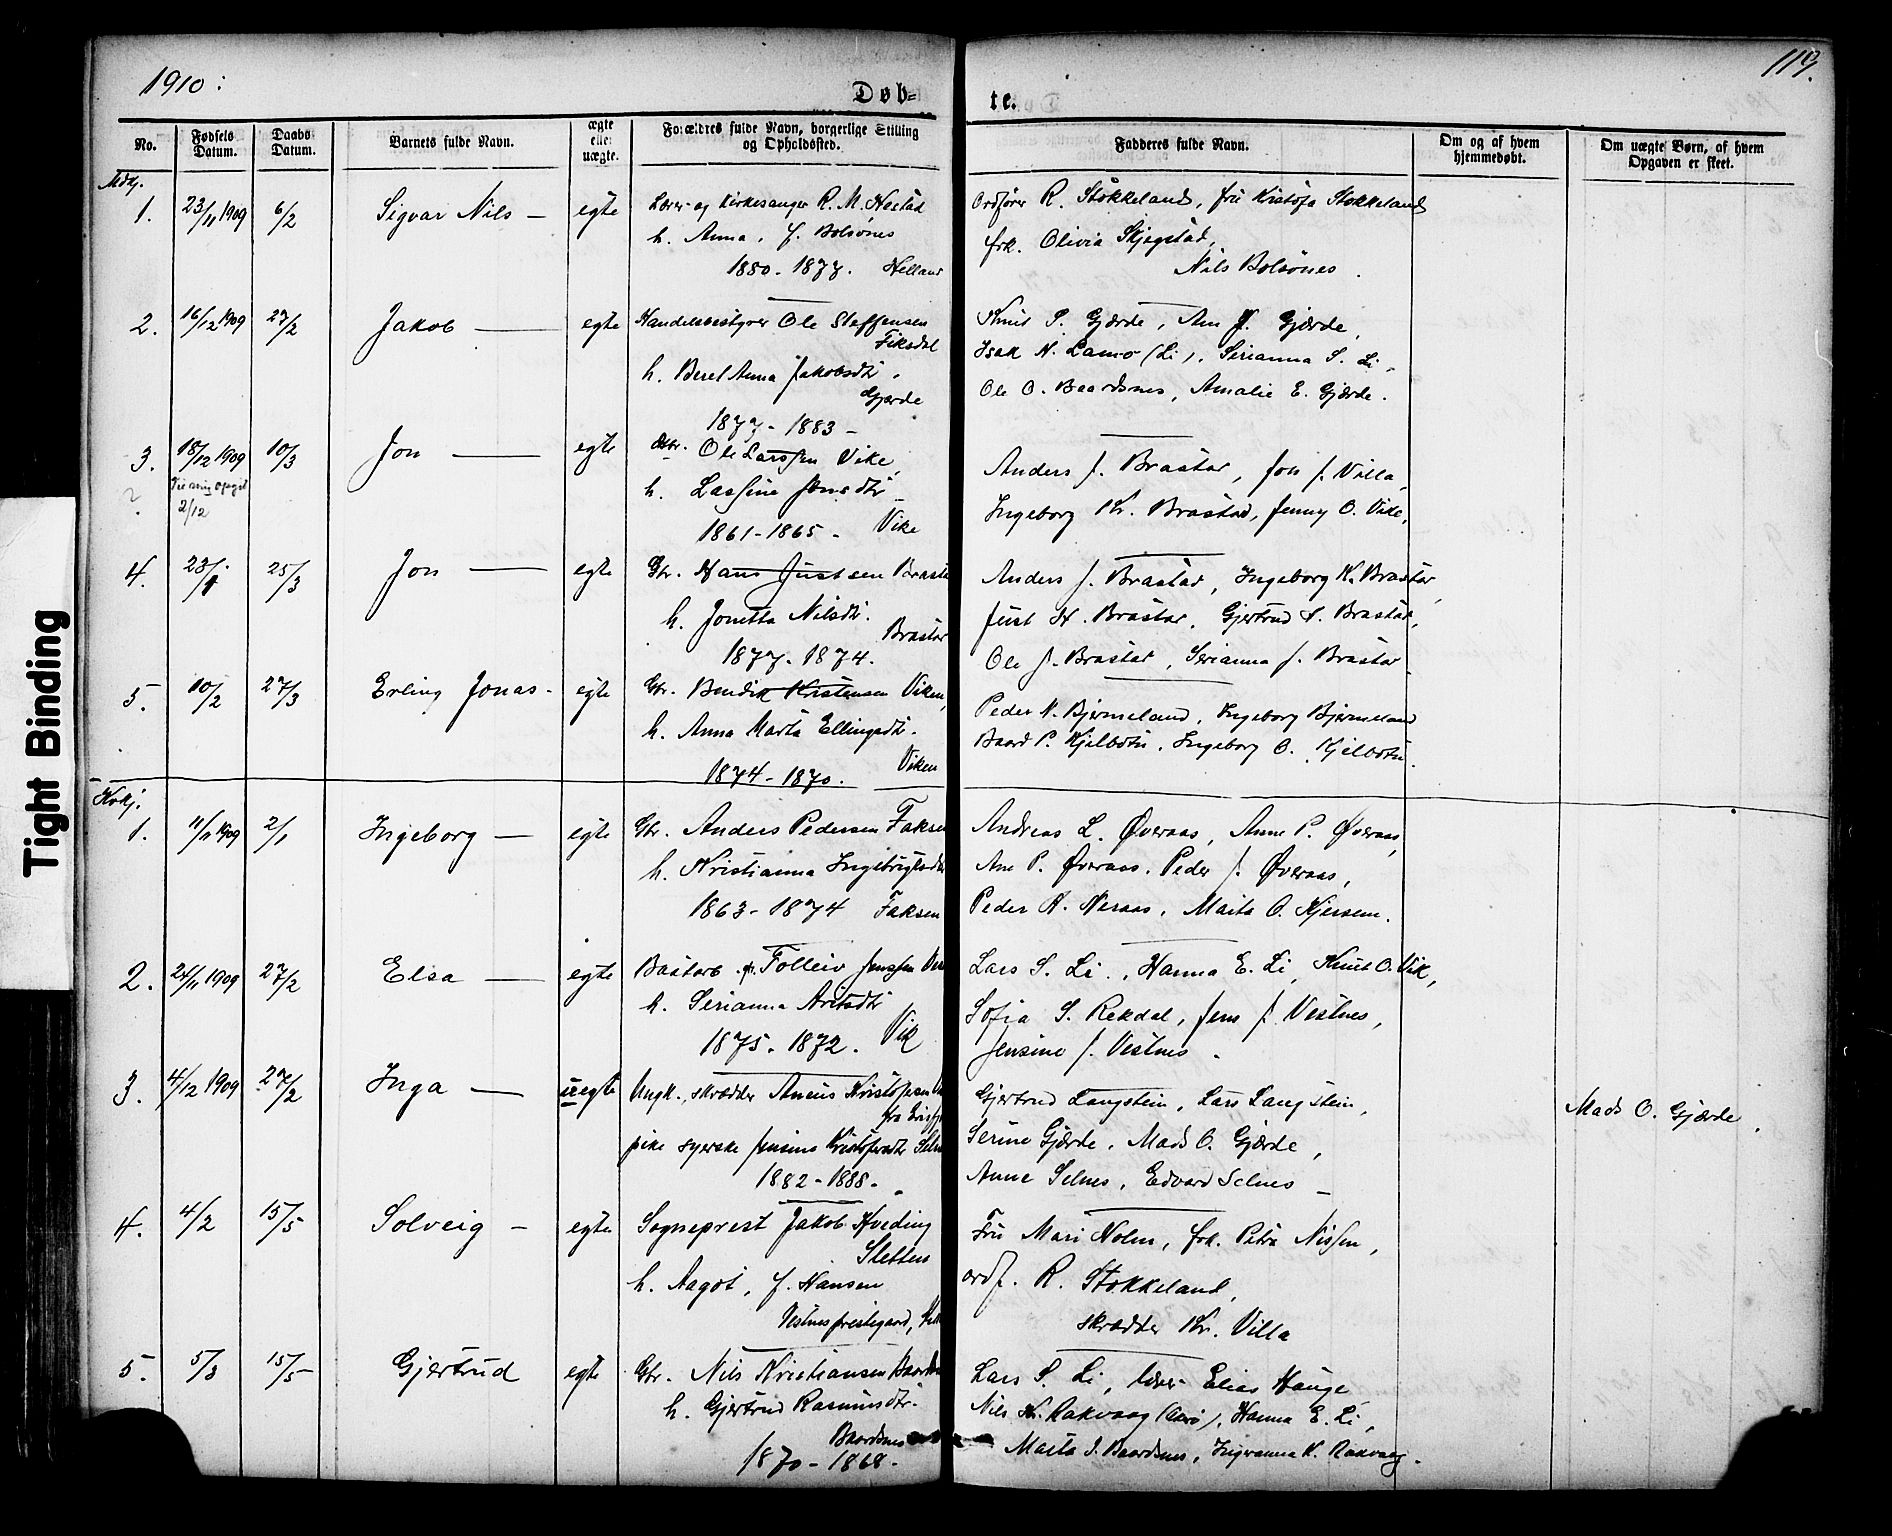 1910:
Døb=
te.
119.
No.
Fødsels Datum.
Daabs Datum.
Barnets fulde Navn.
ægte eller uægte.
Forældres fulde Navn, borgerlige Stilling og Opholdssted.
Fadderes fulde Navn.
Om og af hvem hjemmedøbt.
Om uægte Børn, af hvem Opgaven er skeet.
Mdkj.
1. 23/11 1909 6/2 Sigvar Nils — egte Lærer og Kirkesanger R. M. Hestad
h. Anna, f. Bolsønes
1880. 1877. Helland
Ordfører R. Stokkeland, fru Kristofa Stokkeland
frk. Olivia Skjegstad,
Nils Bolsønes.
2. 16/12 1909 27/2 Jakob — egte Handelsbestyrer Ole Steffensen
Fiksdal
h. Beret Anna Jakobsdtr.
Gjærde
1877 - 1883 -
Knut S. Gjærde, Ane K. Gjærde,
Isak N. Lamo (Li), Serianna S. Li,
Ole O. Baardsnes, Amalie E. Gjærde.
3. 18/12 1909 10/3 Jon — egte Ole Larssen Vike,
2/12
h. Lassine Jonsdtr
1861-1865 - Vike
Anders J. Brastad, Jon J. Villa,
Ingeborg Kr. Brastad, Jenny O. Vike,
4. 23/1 25/3 Jon — egte Gbr. Hans Justsen Brasta
h. Jonetta Nilsdtr.
Brastad
1877. 1874.
Anders J. Brastad, Ingeborg K. Brastad,
Just H. Brastad, Gjertrud A. Brastad,
Ole J. Brastad, Serianna J. Brastad
5. 10/2 27/3 Erling Jonas - egte Gbr. Bendik Kristensen Viken,
h. Anna Marta Ellingsdtr.
1874 - 1870. Viken
Peder N. Bjermeland, Ingeborg Bjermeland
Baard P. Kjelbotn, Ingeborg O. Kjelbotn.
Kvkj.
1. 11/11 1909 2/1 Ingeborg — egte Gbr. Anders Pedersen Faksen
h. Kristianna Ingebrigtsdtr
1863 - 1874 Faksen
Andreas L. Øveraas, Anne P. Øveraas,
Ane P. Øveraas, Peder J. Øveraas,
Peder A. Neraas, Marta O. Kjersem.
2. 24/11 1909 27/2 Elsa — egte Baatarb. Tolleiv Jenssen
h. Serianna Arntsdtr
1875. 1872. Vik
Lars S. Li, Hanna E. Li, Knut O. Vik,
Sofia S. Rekdal, Jens J. Vestnes,
Jensine J. Vestnes.
3. 4/12 1909 27/2 Inga — uegte Ungk., skrædder Aneus Kristofersen
pike syerske Jensine Kristofersdtr Selnes
1882 - 1888.
Gjertrud Langstein, Lars Langstein,
Serine Gjærde, Mads O. Gjærde,
Anne Selnes, Edvard Selnes
Mads O. Gjærde.
4. 4/2 15/5 Solveig — egte Sogneprest Jakob Hveding
Sletten
h. Aagot, f. Hansen
Vestnes prestegaard,
Fru Mari Holm, frk. Petra Nissen,
ordf. R. Stokkeland,
skrædder Kr. Villa
5. 5/3 15/5 Gjertrud egte Gbr. Nils Kristiansen Baardsnes
h. Gjertrud Rasmusdtr.
Baardsnes
1870 - 1868.
Lars S. Li, lærer Elias Hauge
Nils K. Rakvaag (Aarø), Hanna E. Li,
Marta J. Baardsnes, Ingeranna K. Rakvaag.
Tight Binding